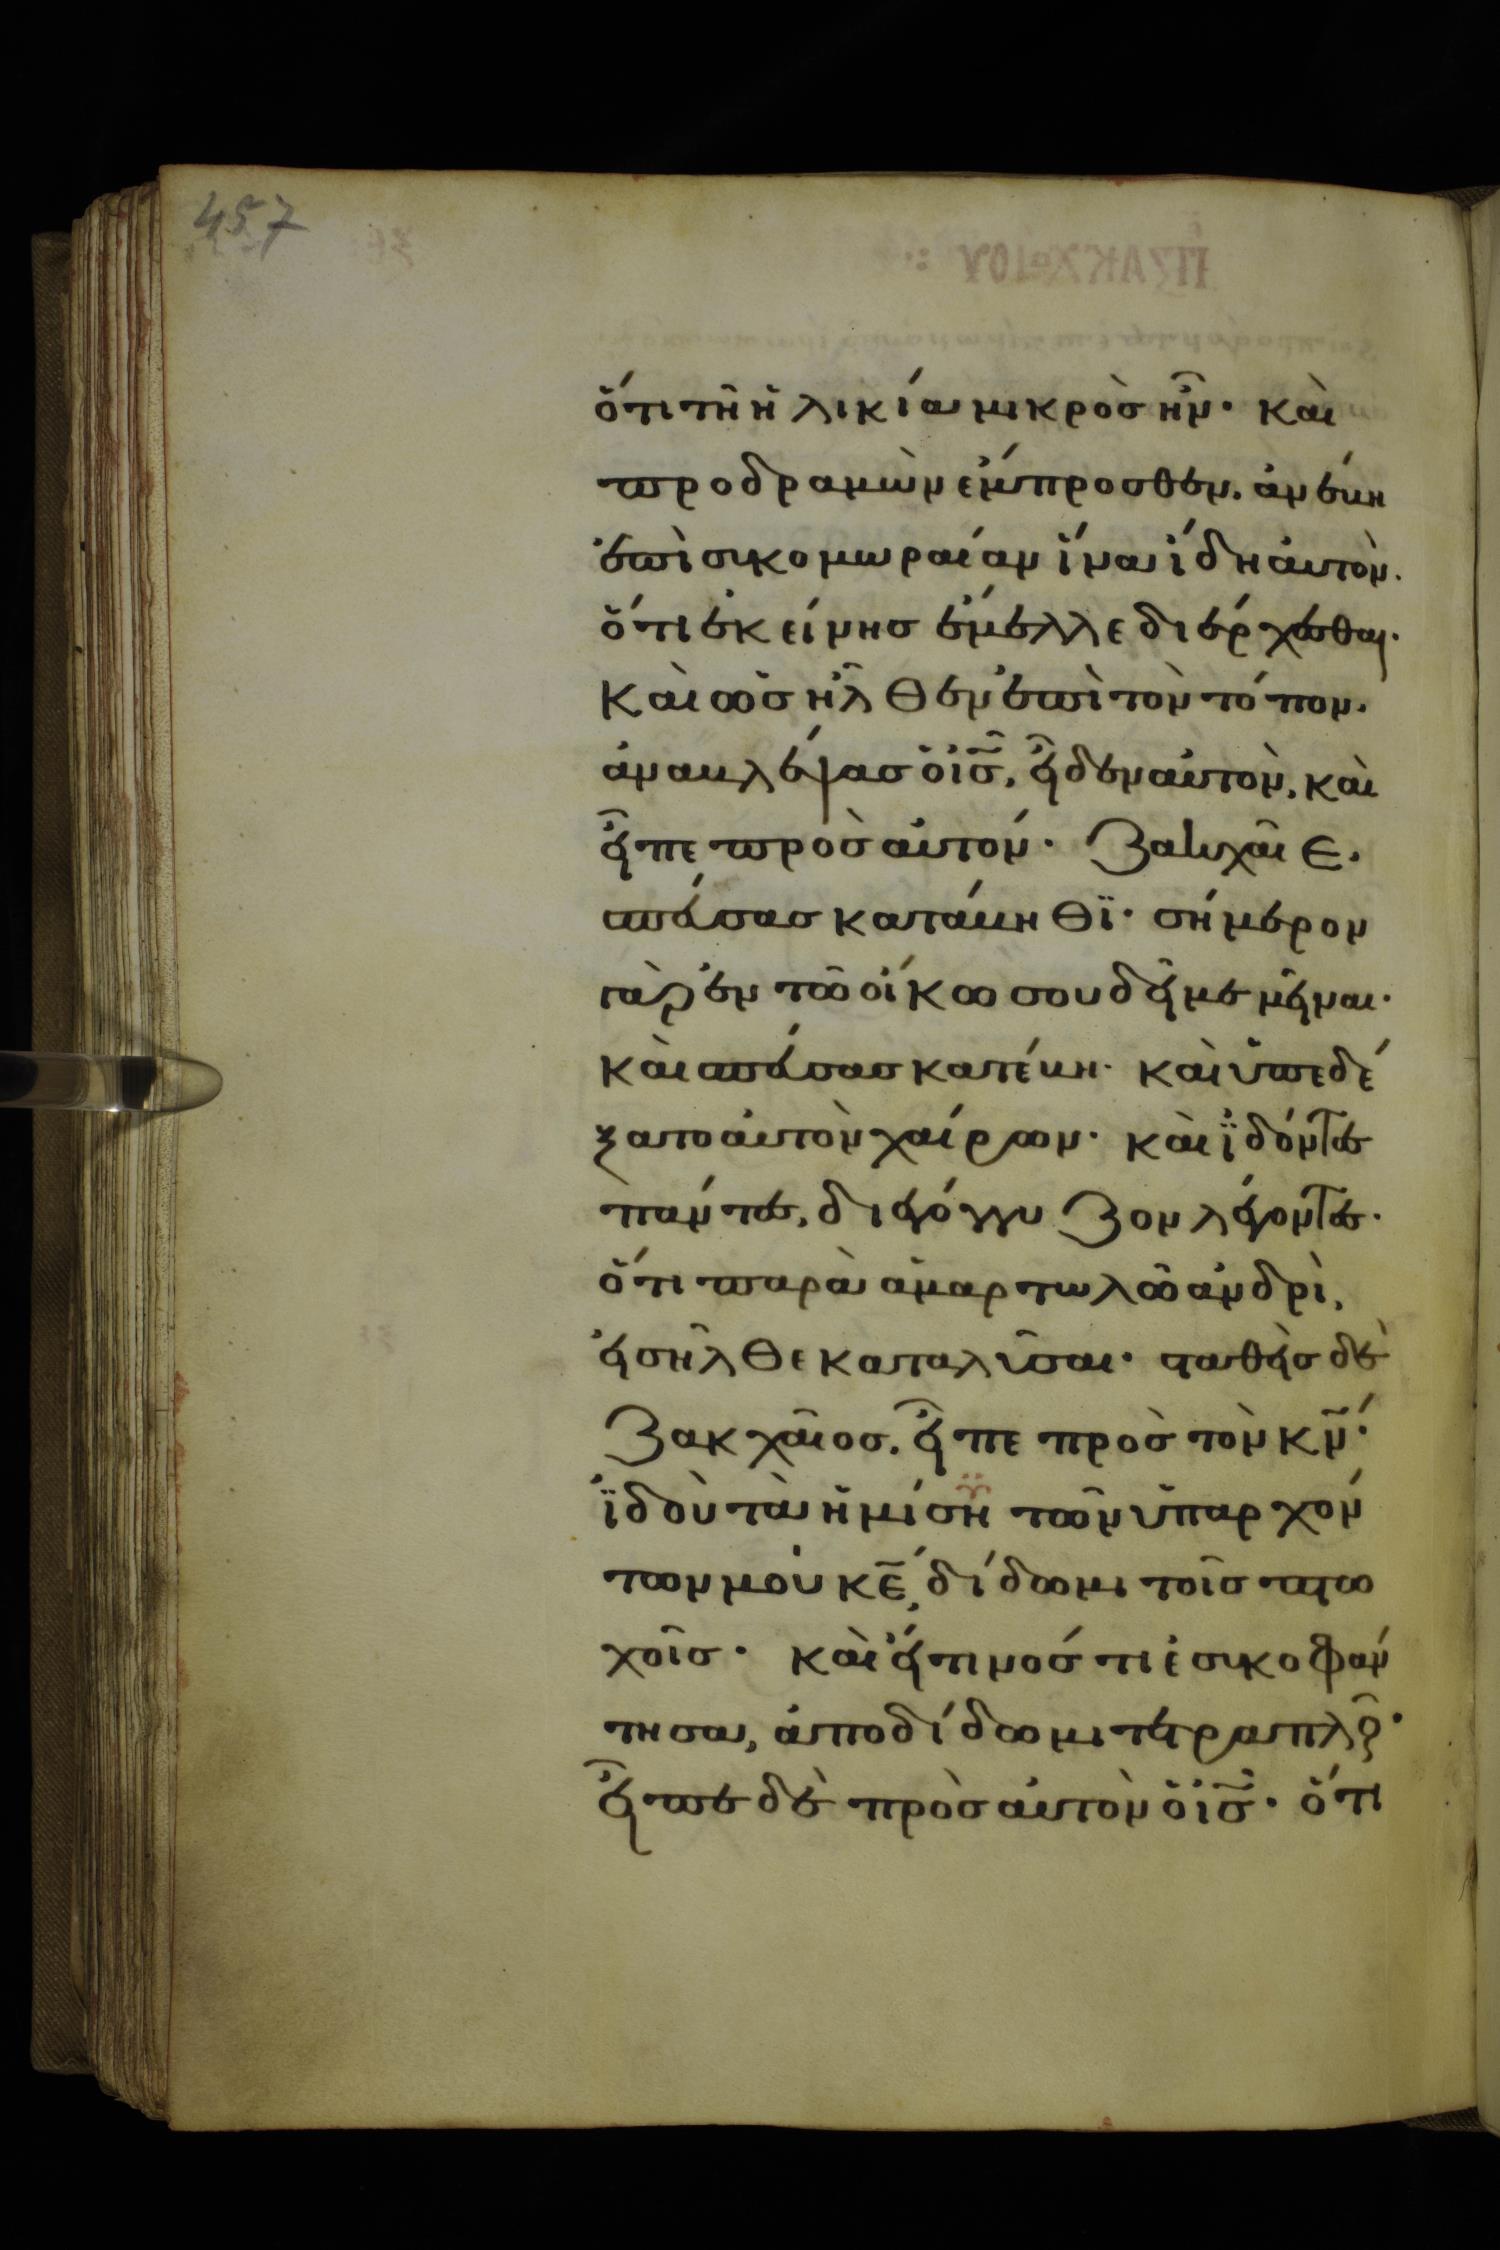 457
ὅτι τῆ ἡλικία μικρὸσ ἦν· καὶ
προδραμὼν ἔμπροσθεν. ἀνέβη
ἐπὶ συκομωραίαν ἵνα ἴδη αὐτὸν.
ὅτι ἐκείνησ ἔμελλε διέρχεσθαι·
Καὶ ὡσ ἦλθεν ἐπὶ τὸν τόπον.
ἀναβλέψασ ὁ ἰ̅σ̅, εἶδεν αὐτὸν, καὶ
εἶπε πρὸσ αὐτόν· Ζακχαῖε.
σπεύσασ κατάβηθϊ· σήμερον
γὰρ ἐν τῶ οἴκω σου δεῖ με μεῖναι·
καὶ σπεύσασ κατέβη· καὶ ὑπεδέ
ξατο αὐτὸν χαίρων· καὶ ἰδόντεσ
πάντεσ, διεγόγγυζον λέγοντεσ·
ὅτι παρὰ ἁμαρτωλῶ ἀνδρὶ,
εἰσῆλθε καταλῦσαι· σταθεὶσ δὲ
Ζακχαῖοσ. εἶπε πρὸσ τὸν κ̅ν̅·
ἰδοὺ τὰ ἡμίση τῶν ὑπαρχόν
των μου κ̅ε̅, δίδωμι τοῖσ πτω
χοῖσ· καὶ εἴ τινόσ τι ἐσυκοφάν
τησα, ἀποδίδωμι τετραπλοῦν·
εἶπε δὲ πρὸσ αὐτὸν ὁ ἰ̅σ̅· ὅτι